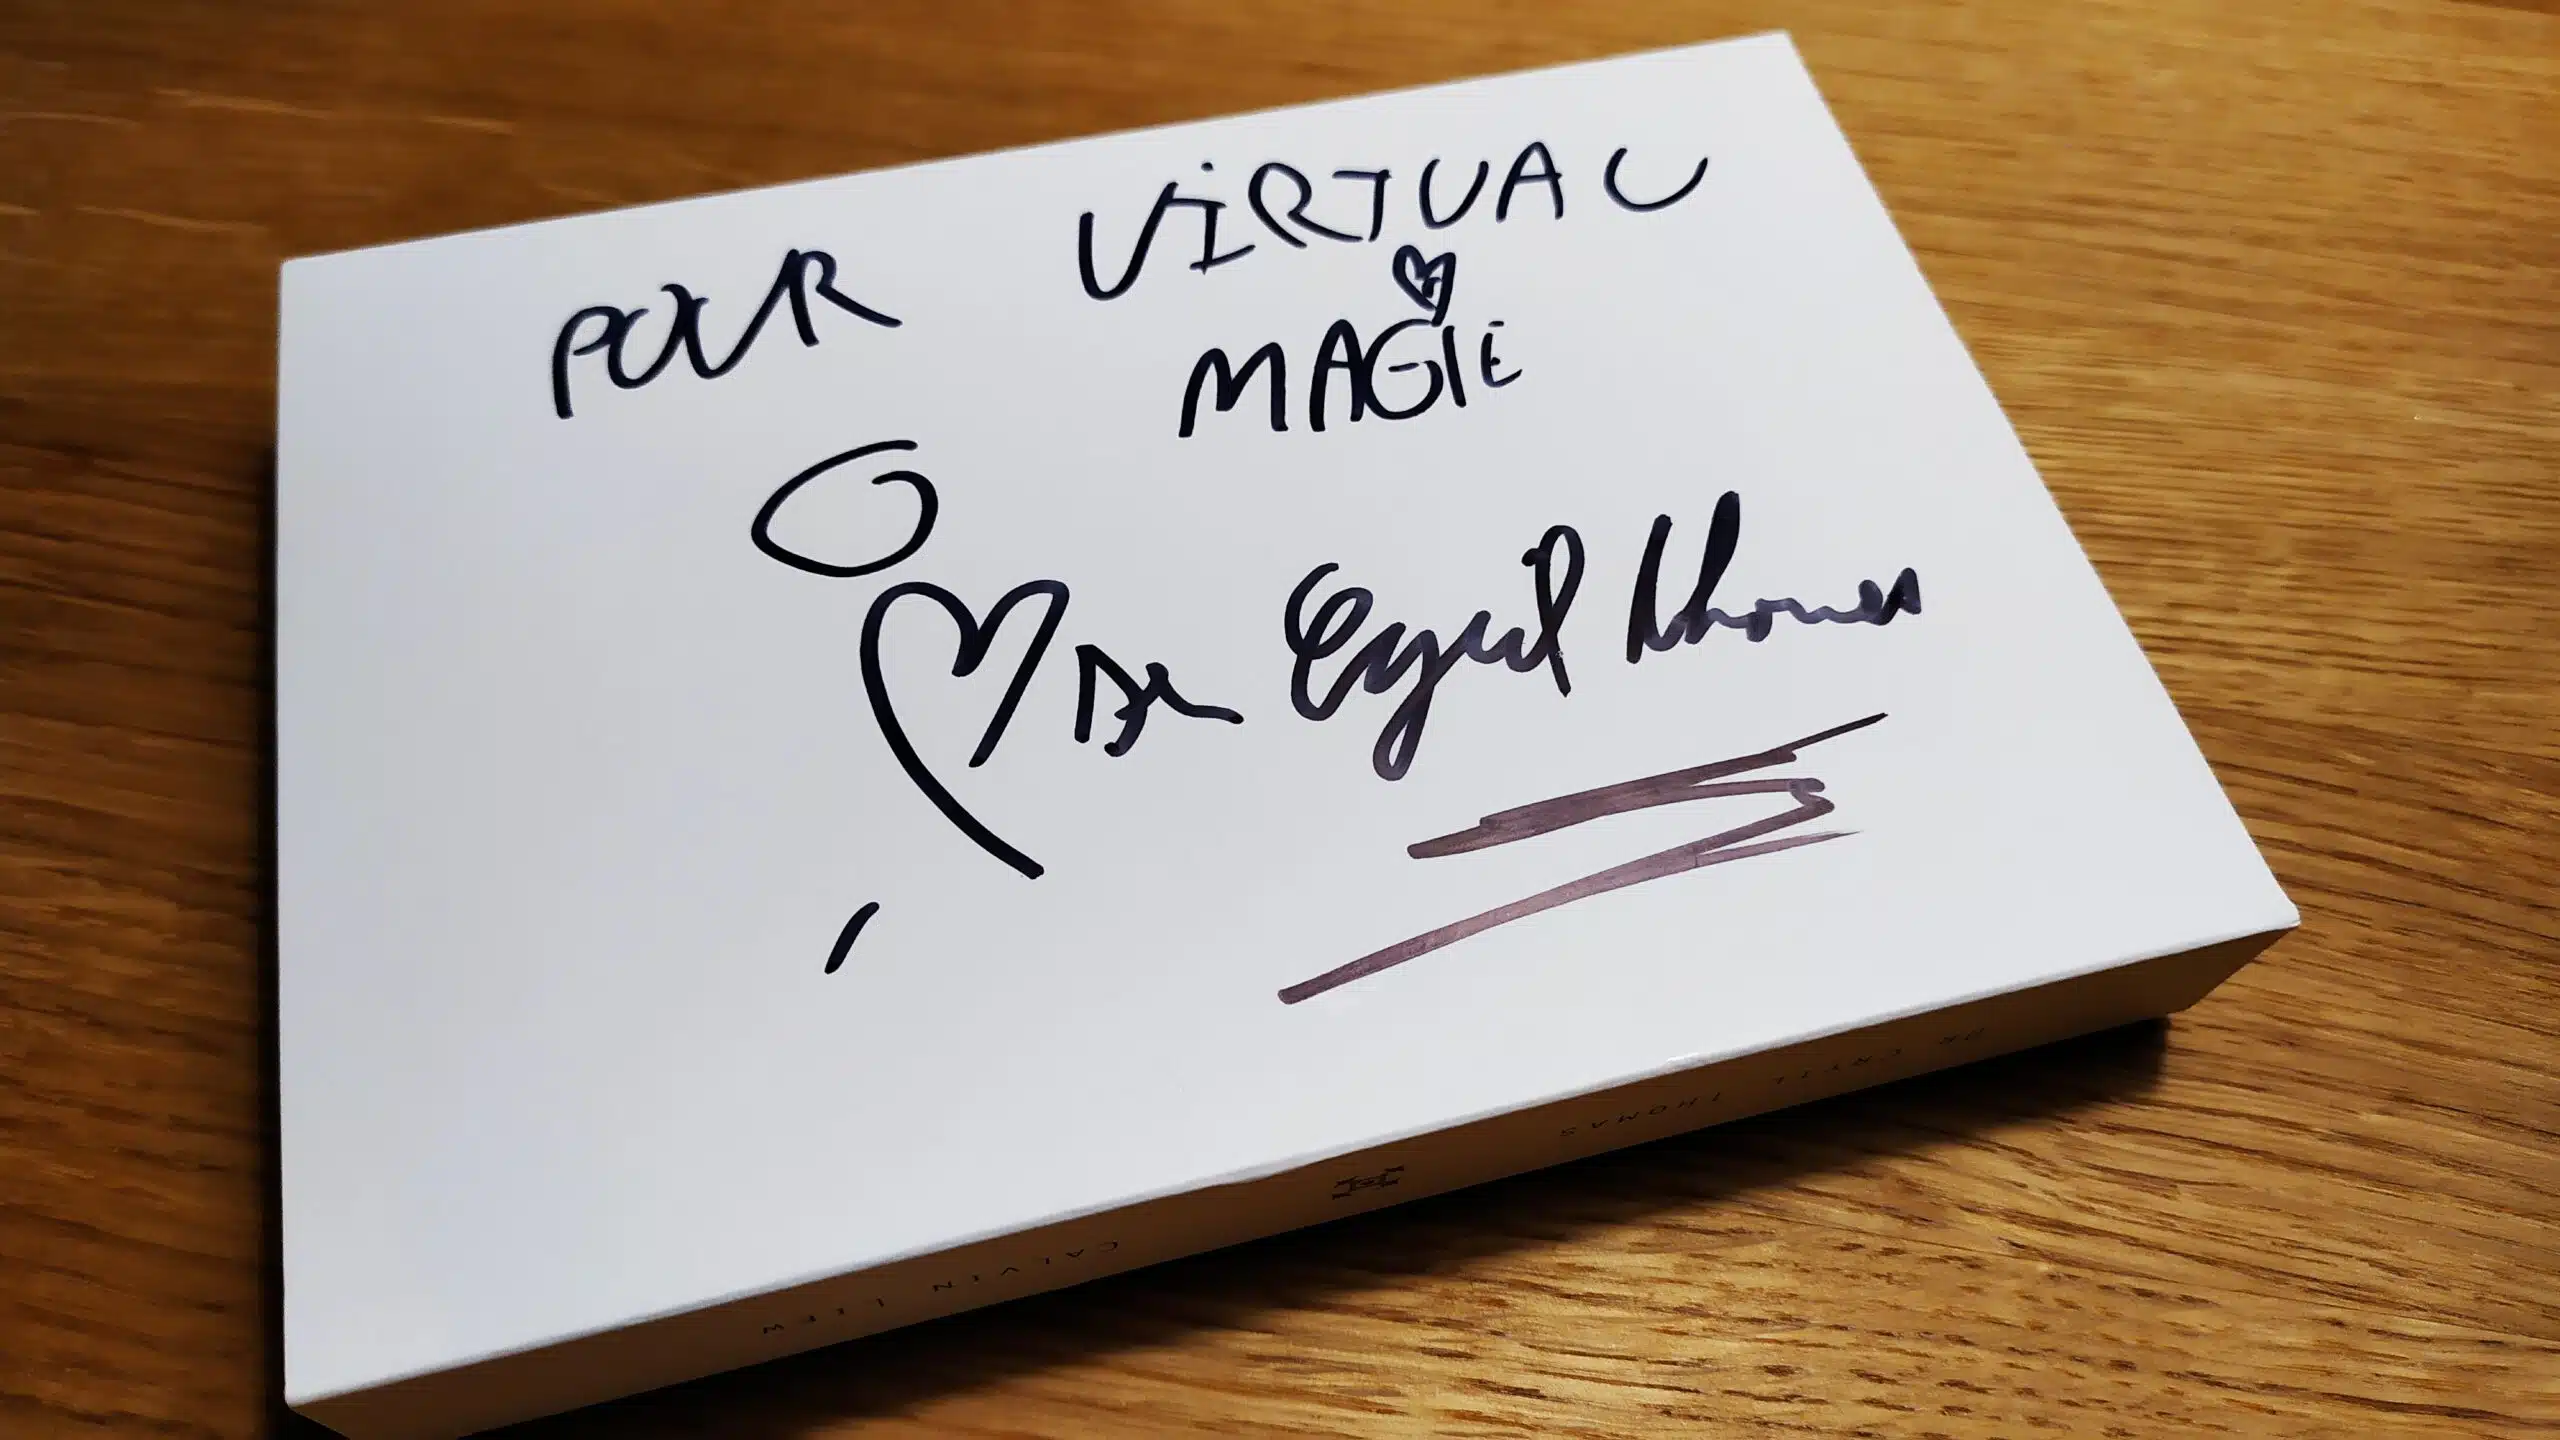 POUR VIRTUAL
MAGIE
Dr Cyril Thomas
DR CYRIL THOMAS
CALVIN LIEW